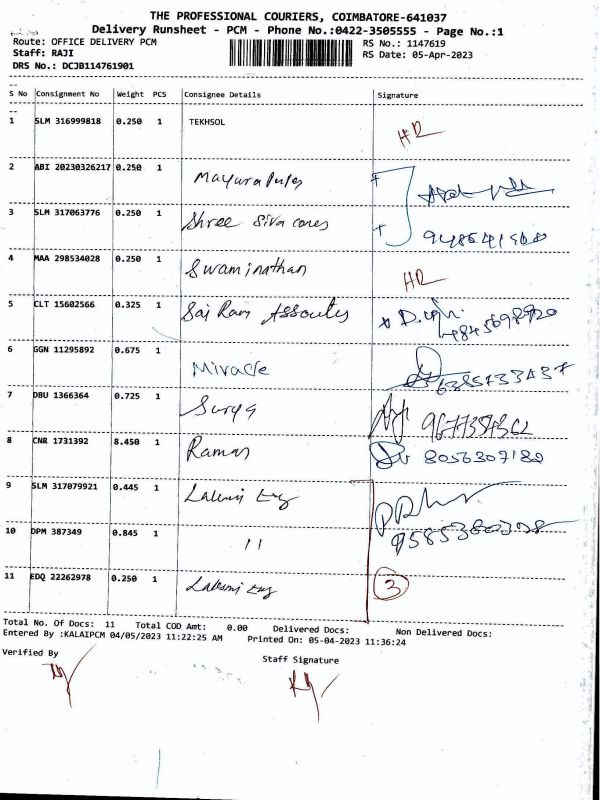 THE PROFESSIONAL COURIERS, COIMBATORE-641037
Delivery Runsheet - PCM - Phone No.:0422-3505555 - Page No.:1
Route: OFFICE DELIVERY PCM
RS No.: 1147619
Staff: RAJI
RS Date: 05-Apr-2023
DRS No.: DCJB114761901
S No Consignment No Weight PCS Consignee Details Signature
1 SLM 316999818 0.250 1 TEKHSOL
2 ABI 20230326217 0.250 1
3 SLM 317063776 0.250 1 Shree Siva
4 MAA 298534028 0.250 1 Swaminathan
5 CLT 15602566 0.325 1 Sai Ram
6 GGN 11295892 0.675 1 Miracle
7 DBU 1366364 0.725 1 Surya
8 CNR 1731392 8.450 1 Raman 8056307180
9 SLM 317079921 0.445 1
10 DPM 387349 0.845 1 11
11 EDQ 22262978 0.250 1 3
Total No. Of Docs: 11 Total COD Amt: 0.00 Delivered Docs: Non Delivered Docs:
Entered By :KALAIPCM 04/05/2023 11:22:25 AM Printed On: 05-04-2023 11:36:24
Verified By
Staff Signature